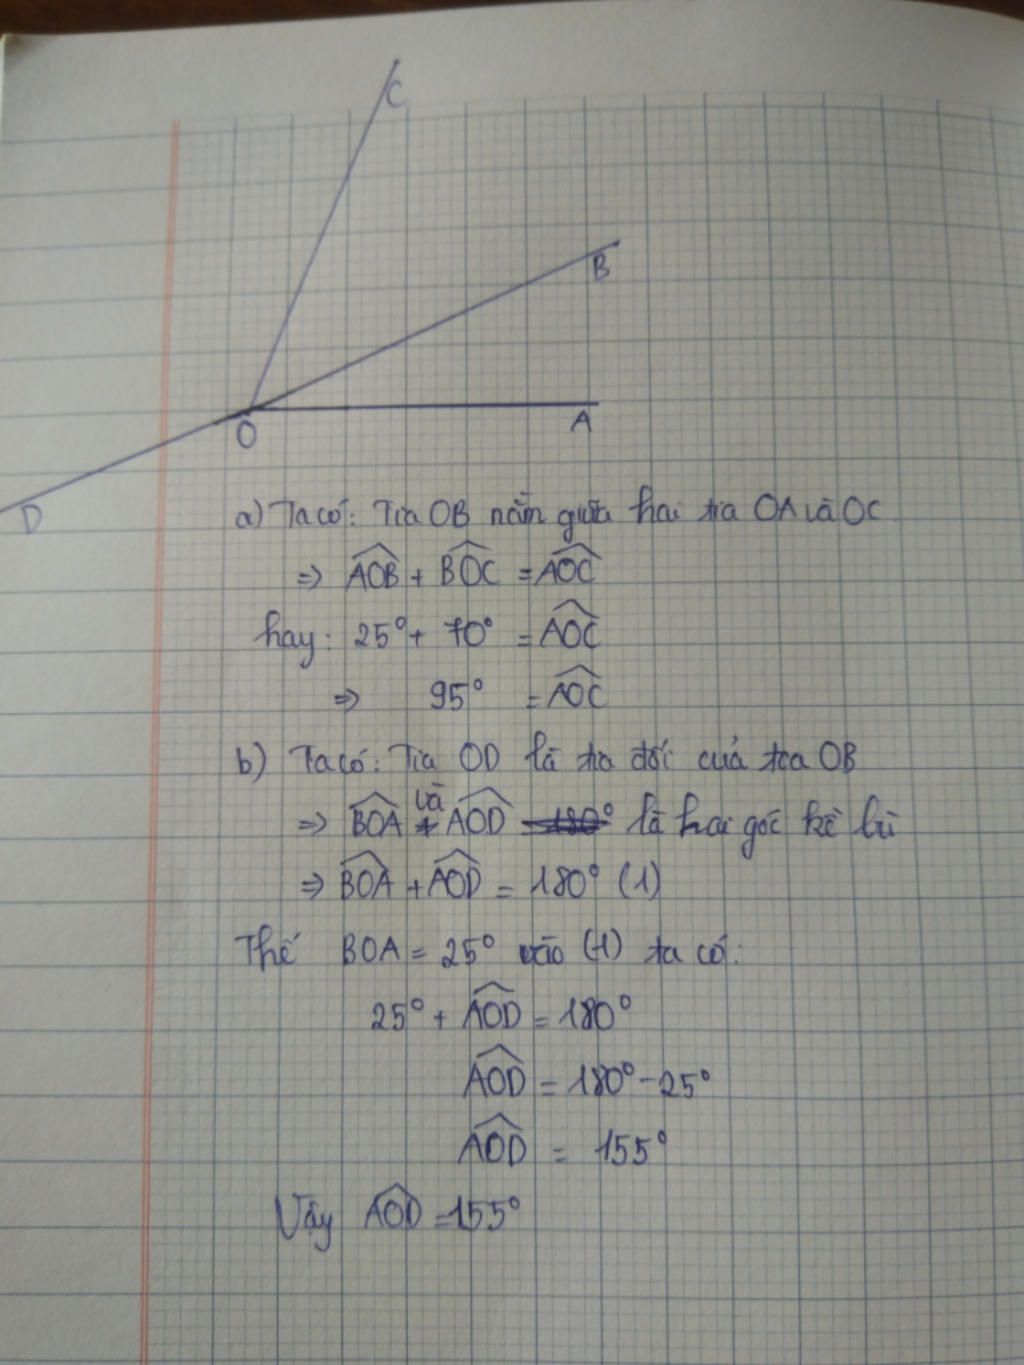 C
B
O
A
D
a) Ta có: Tia OB nằm giữa hai tia OA và OC
=> AOB + BOC = AOC
hay: 25° + 70° = AOC
=> 95° = AOC
b) Ta có: Tia OD là tia đối của tia OB
=> BOA và AOD là hai góc kề bù
=> BOA + AOD = 180° (1)
Thế BOA = 25° vào (1) ta có:
25° + AOD = 180°
AOD = 180° - 25°
AOD = 155°
Vậy AOD = 155°